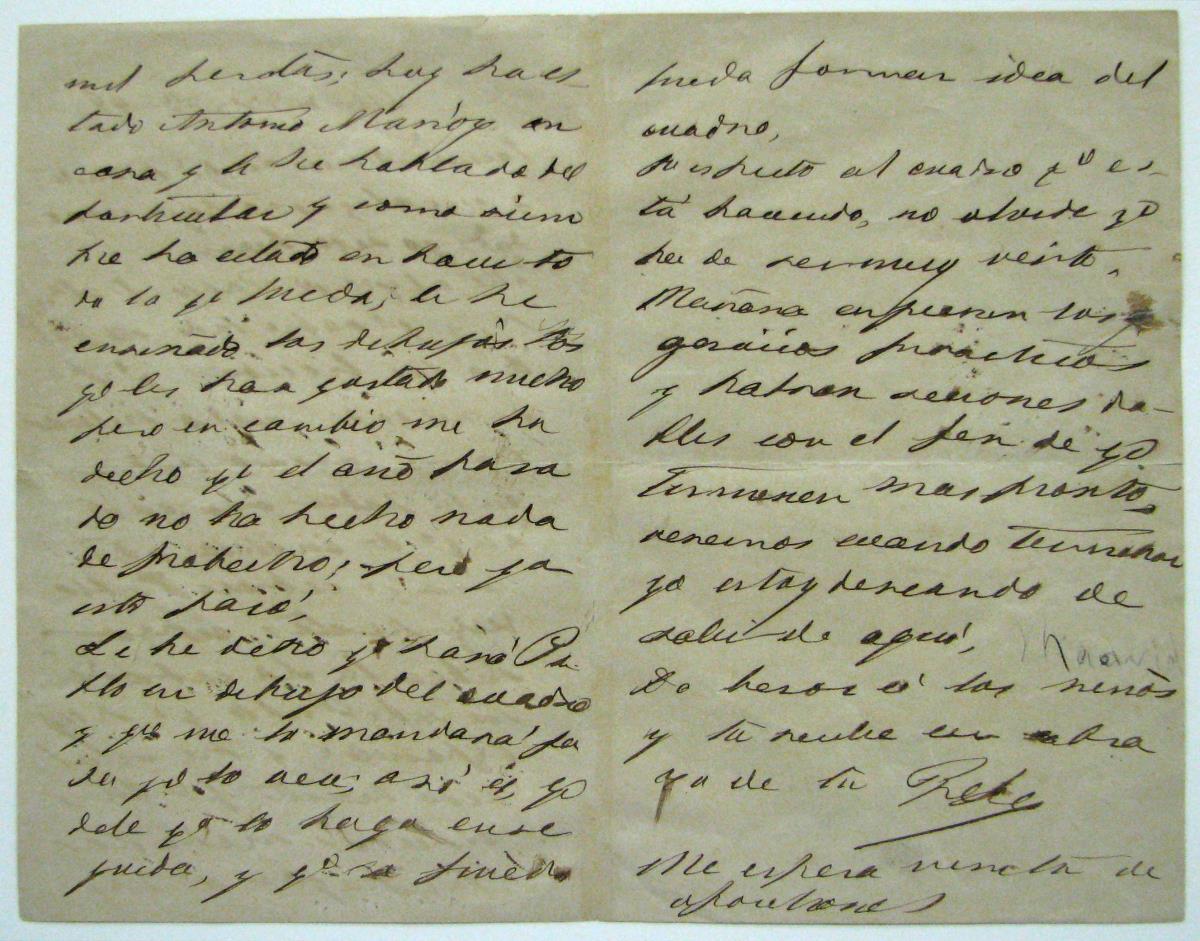 mil pesetas; hoy ha es-
tado Antonio en
casa y le he hablado del
particular y como siem
pre ha estado en hacer to
do lo qe pueda; le he
enseñado los dibujos
qe les han gustado mucho
pero en cambio me ha
dicho qe el año pasa
do no ha hecho nada
de probecho; pero ya
esto pasó,
Le he dicho qe hará Pa
blo un dibujo del cuadro
y qe me lo mandará pa
ra qe lo vea; así es, qe
dile qe lo haga ense
guida, y qe se
pueda formar idea del
cuadro,
Respecto al cuadro qe es-
tá haciendo, no olvide qe
ha de ser muy visto,
Mañana empiezan los
practicos
y habran secciones do-
bles con el fin de qe
terminen mas pronto,
veremos cuando terminan
yo estoy deseando de
salir de aquí,
Da besos á los niños
y tu recibe un abra
zo de tu Pepe
Me espera de
oposiciones